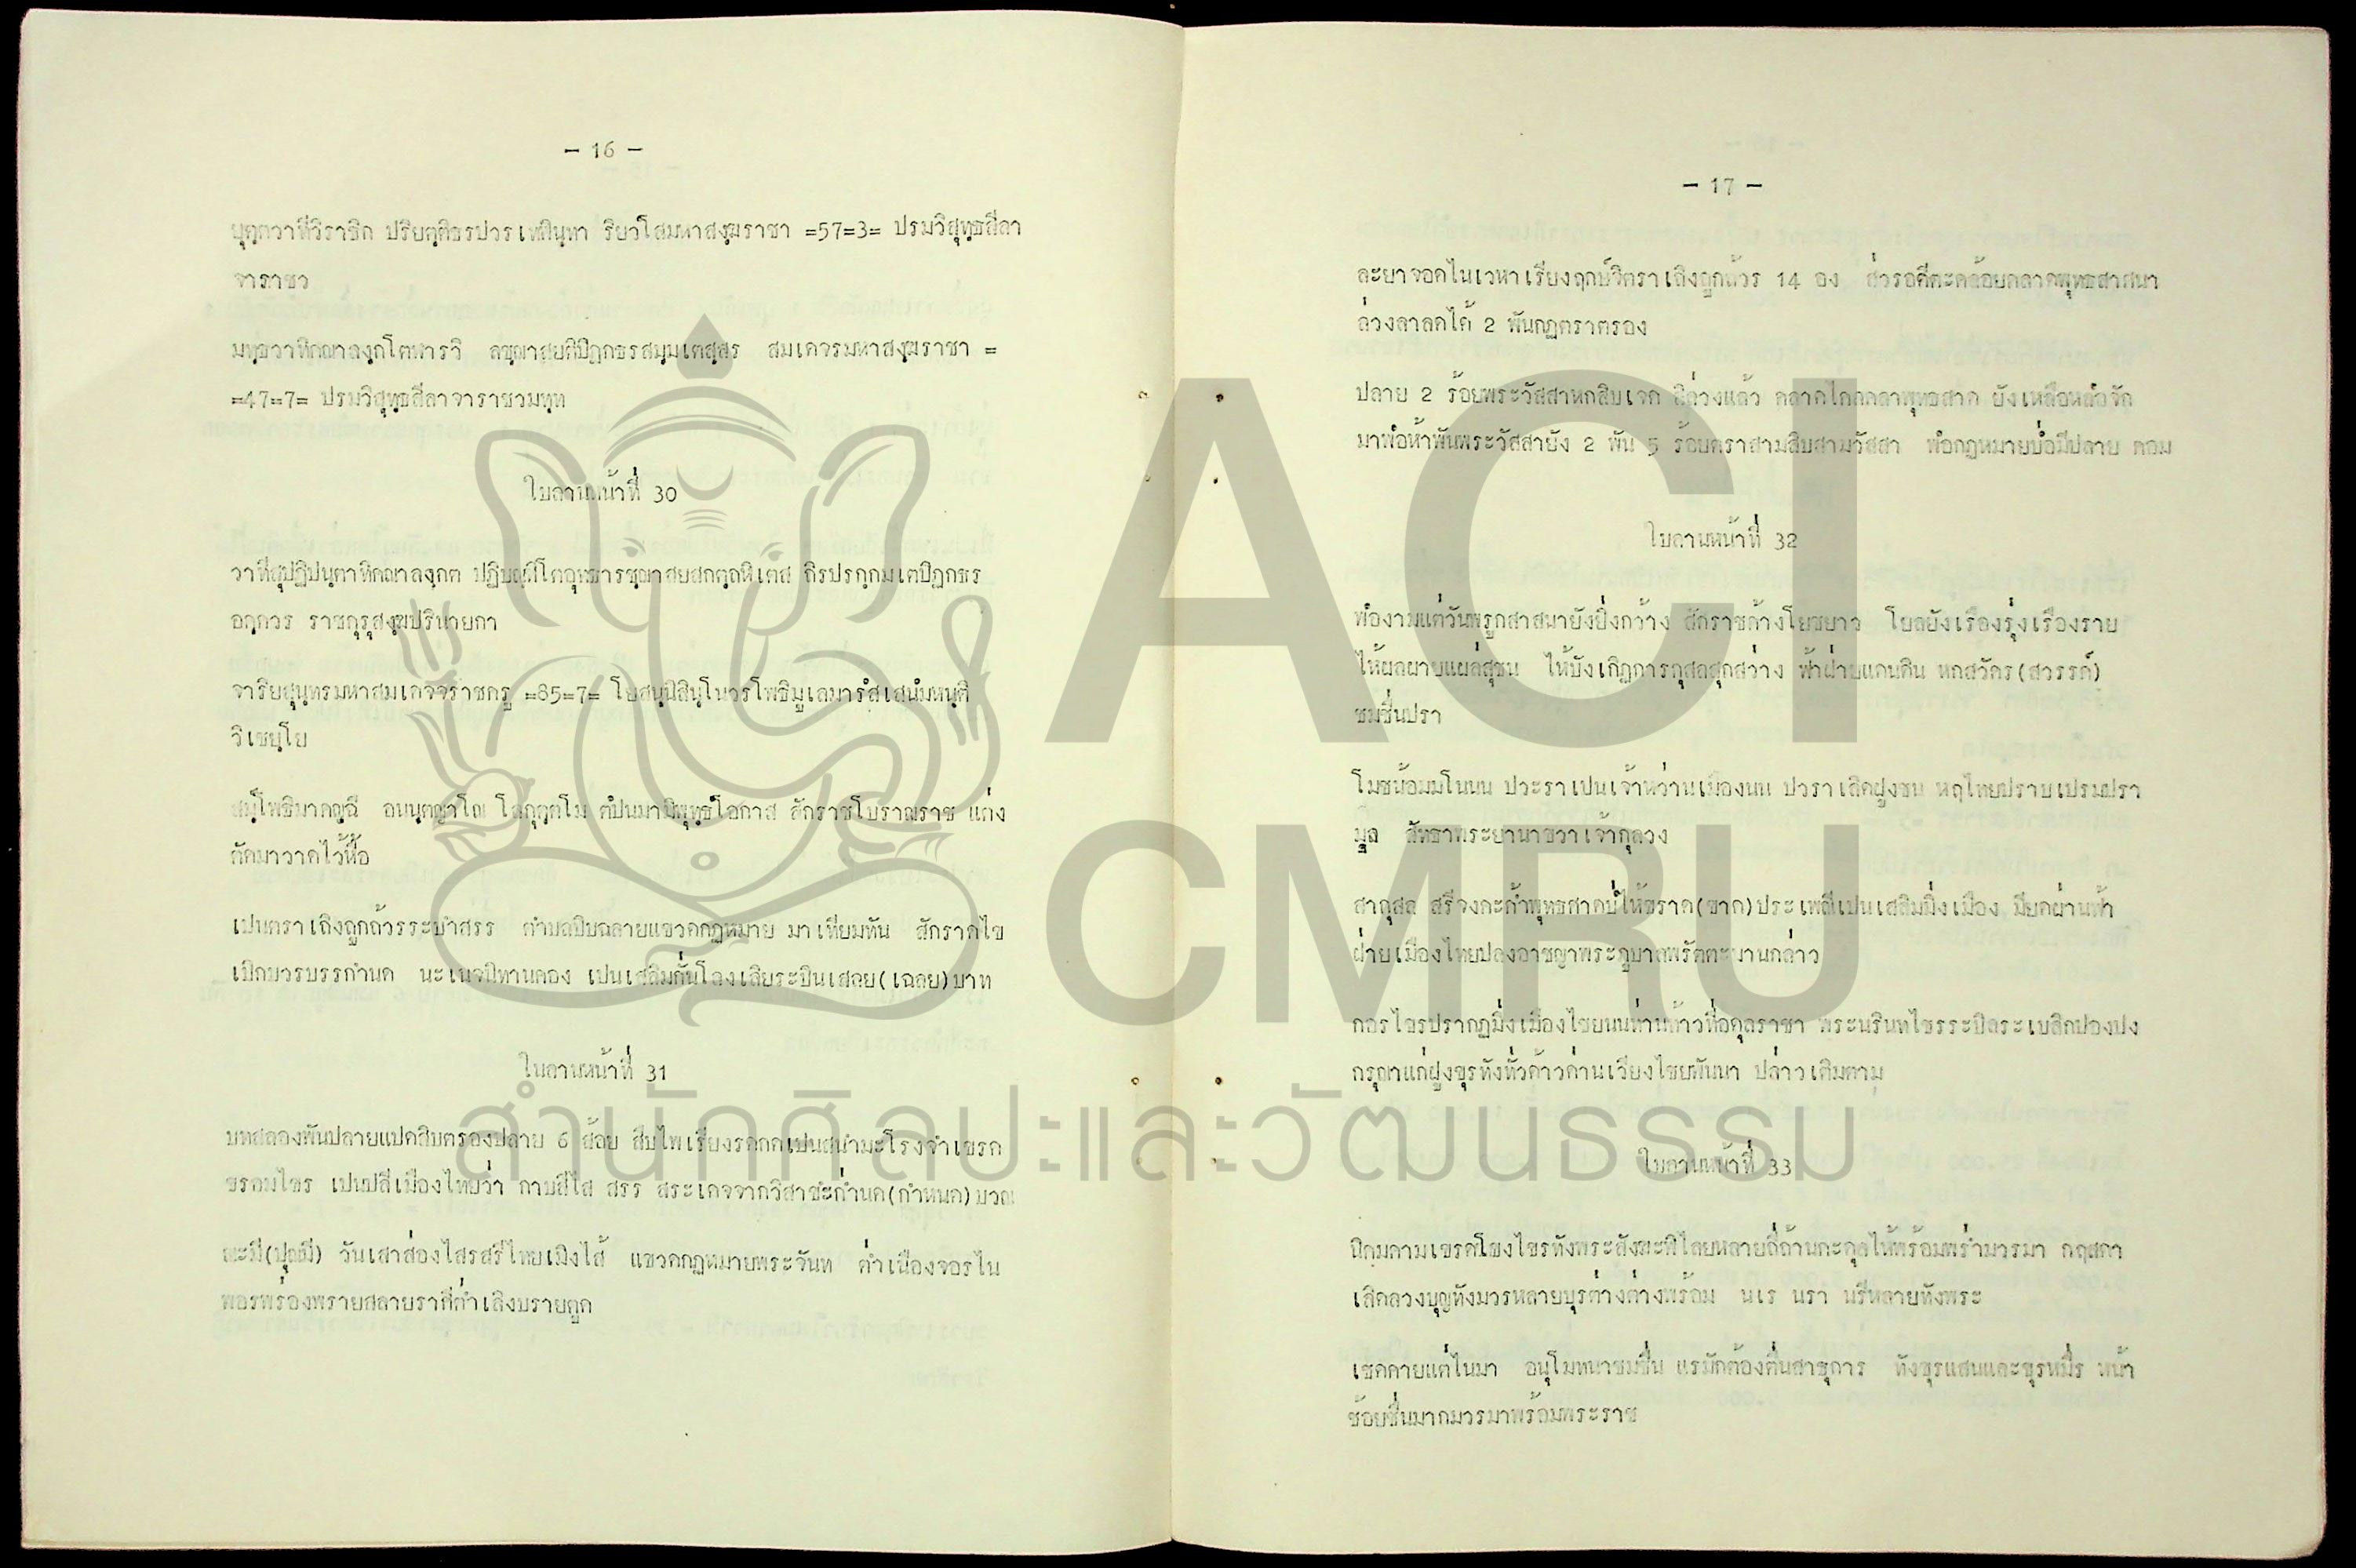 - 16 -
ยุตฺตวาทีวิราชิต ปริยตฺติธรปวร เทสินฺทา ริยวํโสมหาสงฺฆราชา =57=3= ปรมวิสุทฺธสีลา
จาราชว
มทฺธวาทิคณาลงฺกโตหารวิ ลชฺฌาสยติปิฏกธรสมฺมเตสุสร สมเดจรมหาสงฺฆราชา =
=47=7= ปรมวิสุทฺธสีลาจาราชวมทฺท
ใบลานหน้าที่ 30
วาทีสุปฏิปนฺตาทิคณาลงฺกต ปฏิบตฺติโตอุทธารชฺฌาสยสกตฺถนิเตส ถิรปรกฺกมเตปิฏกธร
อคฺควร ราชกุรุสงฺฆปรินายกา
จาริยสุนฺทรมหาสมเดจจราชครู =85=7= โยสนฺนิสินฺโนวรโพธิมูเลมารํสเสนํมหนฺติ
วิเชยฺโย
สมฺโพธิมาคญฺฉิ อนนฺตญาโณ โลกุตฺตโม ตํปนมามิพุทฺธํโอกาส สักราชโบราณราช แต่ง
ถัดมาวาดไว้หื้อ
เปนตราเถิงถูกถ้วรระบำสรร ตำบลปิบฉลายแขวดกฎหมาย มาเทียมทัน สักราดไข
เบิกบวรบรรกำนด นะเนจนิทานคอง เปนเสลิมถั่นโลงเสียระบินเสลย(เฉลย)บาท
ใบลานหน้าที่ 31
บทสลองพันปลายแปดสิบตรองปลาย 6 ส้อย สิบไพเรียงรดกดเปนสนำมะโรงจำเขรด
ขรอมไขร เปนปลีเมืองไทยว่า กาบสีไส สรร สระเดจจากวิสาขะกำนด(กำหนด)บวณ
ณะมี(ปุณมี) วันเสาส่องไสรสรีไทยเมิงไส้ แขวดกฎหมายพระจันท ต่ำเนืองจอรใน
พอรพร่องพรายสลายราศีต่ำเลิงบรายถูก
- 17 -
ละยาจอดในเวหาเรียงฤกษ์จิตราเถิงถูกถ้วร 14 อง ส่วรอดีตะคล้อยคลาดพุทธสาสนา
ล่วงลาลดได้ 2 พันกฏตราตรอง
ปลาย 2 ร้อยพระวัสสาหกสิบเจด ลีล่วงแล้ว คลาดไคลคลาพุทธสาด ยังเหลือหลอจัก
มาพํอห้าพันพระวัสสายัง 2 พัน 5 ร้อยตราสามสิบสามวัสสา พํอกฎหมายบํอมีปลาย คอม
ใบลานหน้าที่ 32
พํองามแต่วันพรูกสาสนายังยิ่งกว้าง สักราชด้างโยชยาว โยลยังเรืองรุ่งเรืองราย
ให้ผลผายแผล่สุชน ให้บังเกิฎการกุสลสุกสว่าง ฟ้าฝ่ายแดนดิน หกสวัคร(สวรรค์)
ชมชื่นปรา
โมชน้อมมโนนน ปวะราเปนเจ้าหว่านเมืองนน ปวราเลิดฝูงชน หฤไทยปราบเปรมปรา
มูล สัทธาพระยานาขวาเจ้ากุลวง
สากุสล สรีจงคะก้ำพุทธสาดบํให้ขราด(ขาด)ประเพณีเปนเสลิมมิ่งเมือง มียดผ่านฟ้า
ฝ่ายเมืองไทยปลงอาชญาพระภูบาลพรัตตะบานกล่าว
กอรไจรปรากฏมิ่งเมืองไชยนนท่านท้าวที่อดุลราชา พระนรินทไชรระบิลระเบสิกปองปง
กรุณาแก่ฝูงขุรทังทั่วด้าวด่านเวียงไชยพันนา ปล่าวเติมตาม
ใบลานหน้าที่ 33
นิคมคามเขรตโขงไขรทังพระสังฆะพิไลยหลายถี่ถ้านกะตุลให้พร้อมพร่ำมวรมา กฤสดา
เลิดลวงบุญทังมวรหลายบุรต่างต่างพร้อม นเร นรา นรีหลายทังพระ
เชดดายแต่ไนมา อนุโมทนาชมชื่น แรมักต้องตื่นสาธุการ ทังขุรแสนและขุรหมื่ร หน้า
ช้อยชื่นมากมวรมาพร้อมพระราช
ACI
CMRU
สำนักศิลปะและวัฒนธรรม